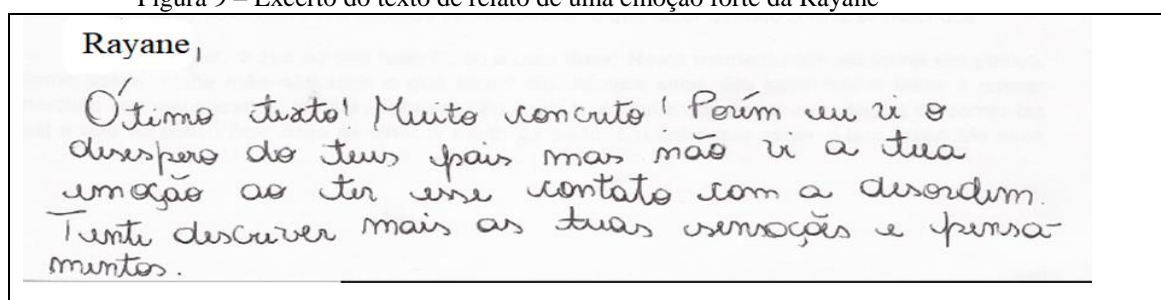 Figura 9 – Excerto do texto de relato de uma emoção forte da Rayane
Rayane,
Ótimo texto! Muito concreto! Porém eu vi o
desespero do teus pais mas não vi a tua
emoção ao ter esse contato com a desordem.
Tente descrever mais as tuas sensações e pensa-
mentos.